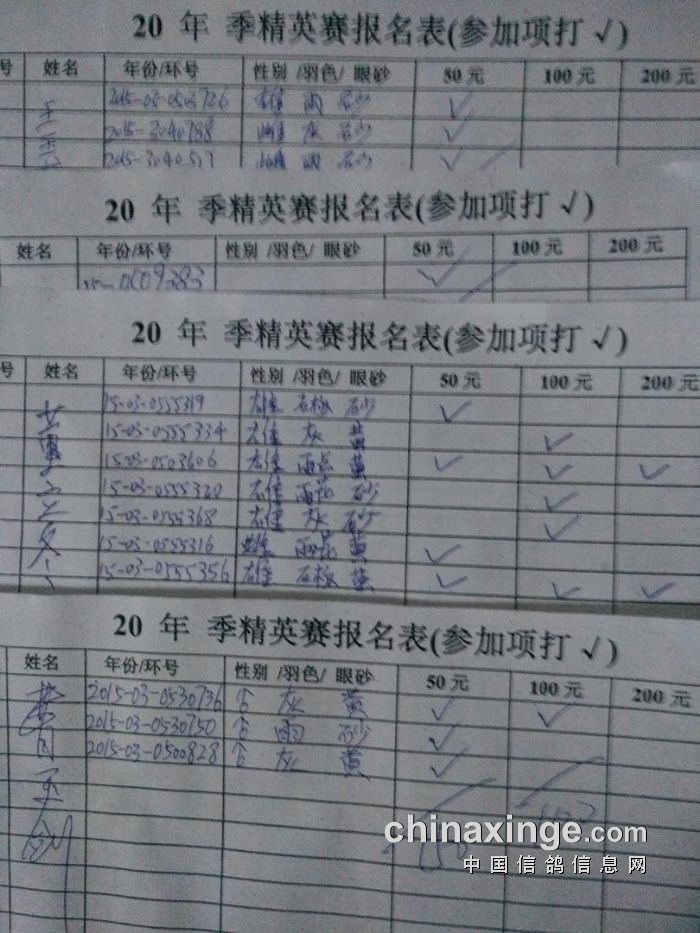 20 年 季精英赛报名表(参加项打 √)
号 姓名 年份/环号 性别 /羽色/ 眼砂 50 元 100 元 200 元
2015-03-0503726 雄 雨 砂 √
2015-3040788 雌 灰 √
2015-3040517 雌 雨 √
20 年 季精英赛报名表(参加项打 √)
姓名 年份/环号 性别 /羽色/ 眼砂 50 元 100 元 200 元
15-0609383 √
20 年 季精英赛报名表(参加项打 √)
号 姓名 年份/环号 性别 /羽色/ 眼砂 50 元 100 元 200 元
15-03-0555319 雄 石板 砂 √
15-03-0555334 雄 灰 黄 √
15-03-0503606 雄 雨点 黄 √ √ √
15-03-0555320 雄 雨花 砂 √
15-03-0555368 雄 灰 砂 √
15-03-0555316 雌 雨花 黄 √
15-03-0555356 雄 石板 黄 √ √ √
20 年 季精英赛报名表(参加项打 √)
姓名 年份/环号 性别 /羽色/ 眼砂 50 元 100 元 200 元
2015-03-0530736 灰 黄 √ √
2015-03-0530750 雨 砂 √
2015-03-0500828 灰 黄 √
150
chinaxinge.com
中国信鸽信息网